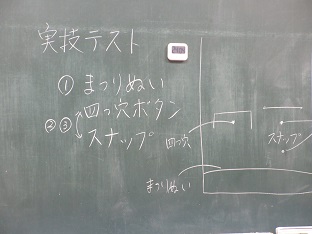 実技テスト
① まつりぬい
②③ 四つ穴ボタン
スナップ
四つ穴
スナップ
まつりぬい